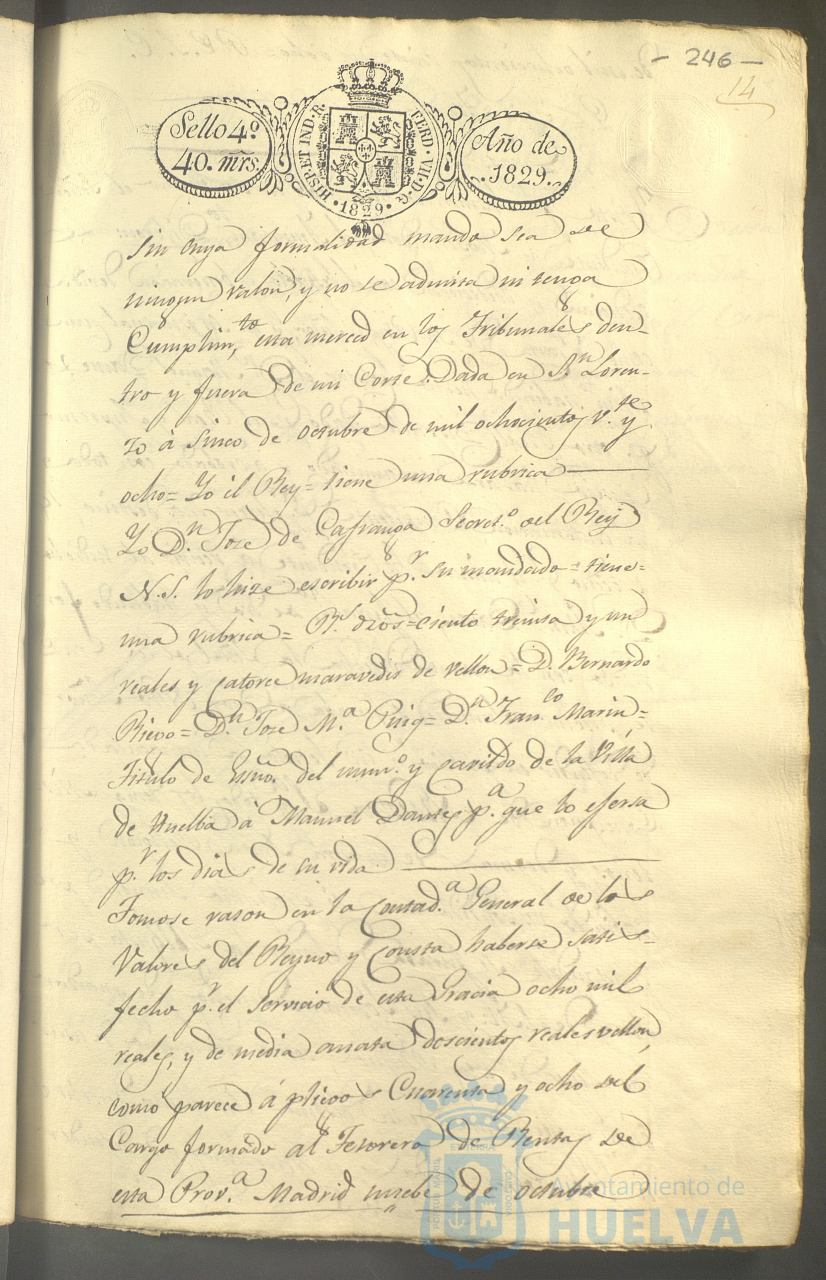 - 246 -
14
Sello 4º
40. mrs
HISP. ET IND. R.
FERD. VII. D. G.
· 1829 ·
Año de
. 1829 .
sin cuya formalidad mando sea de
ningun valor, y no se admita ni tenga
Cumplim.to esta merced en los Tribunales den-
tro y fuera de mi Corte. Dada en S.n Loren-
zo á sinco de octubre de mil ochocientos v.te y
ocho= Yo el Rey= tiene una rubrica
Yo D.n Jose de Cafranga Secret.o del Rey
N.S. lo hize escribir p.r su mandado= tiene=
una rubrica= R.s dros= ciento treinta y un
reales y catorce maravedis de vellon= D. Bernardo
Riego= D.n Jose M.a Puig= D.n Fran.co Marin=
Titulo de Essno. del num.o y cavildo de la Villa
de Huelba á Manuel Dantes p.a que lo esersa
p.r los dias de su vida
Tomose rason en la Contad.a General de los
Valores del Reyno y Consta haberse satis-
fecho p.r el Servicio de esta Gracia ocho mil
reales, y de media annata doscientos reales vellon,
como parece á pliegos Cuarenta y ocho del
Cargo formado al Tesorero de Rentas de
esta Prov.a Madrid nuebe de octubre
Ayuntamiento de
HUELVA